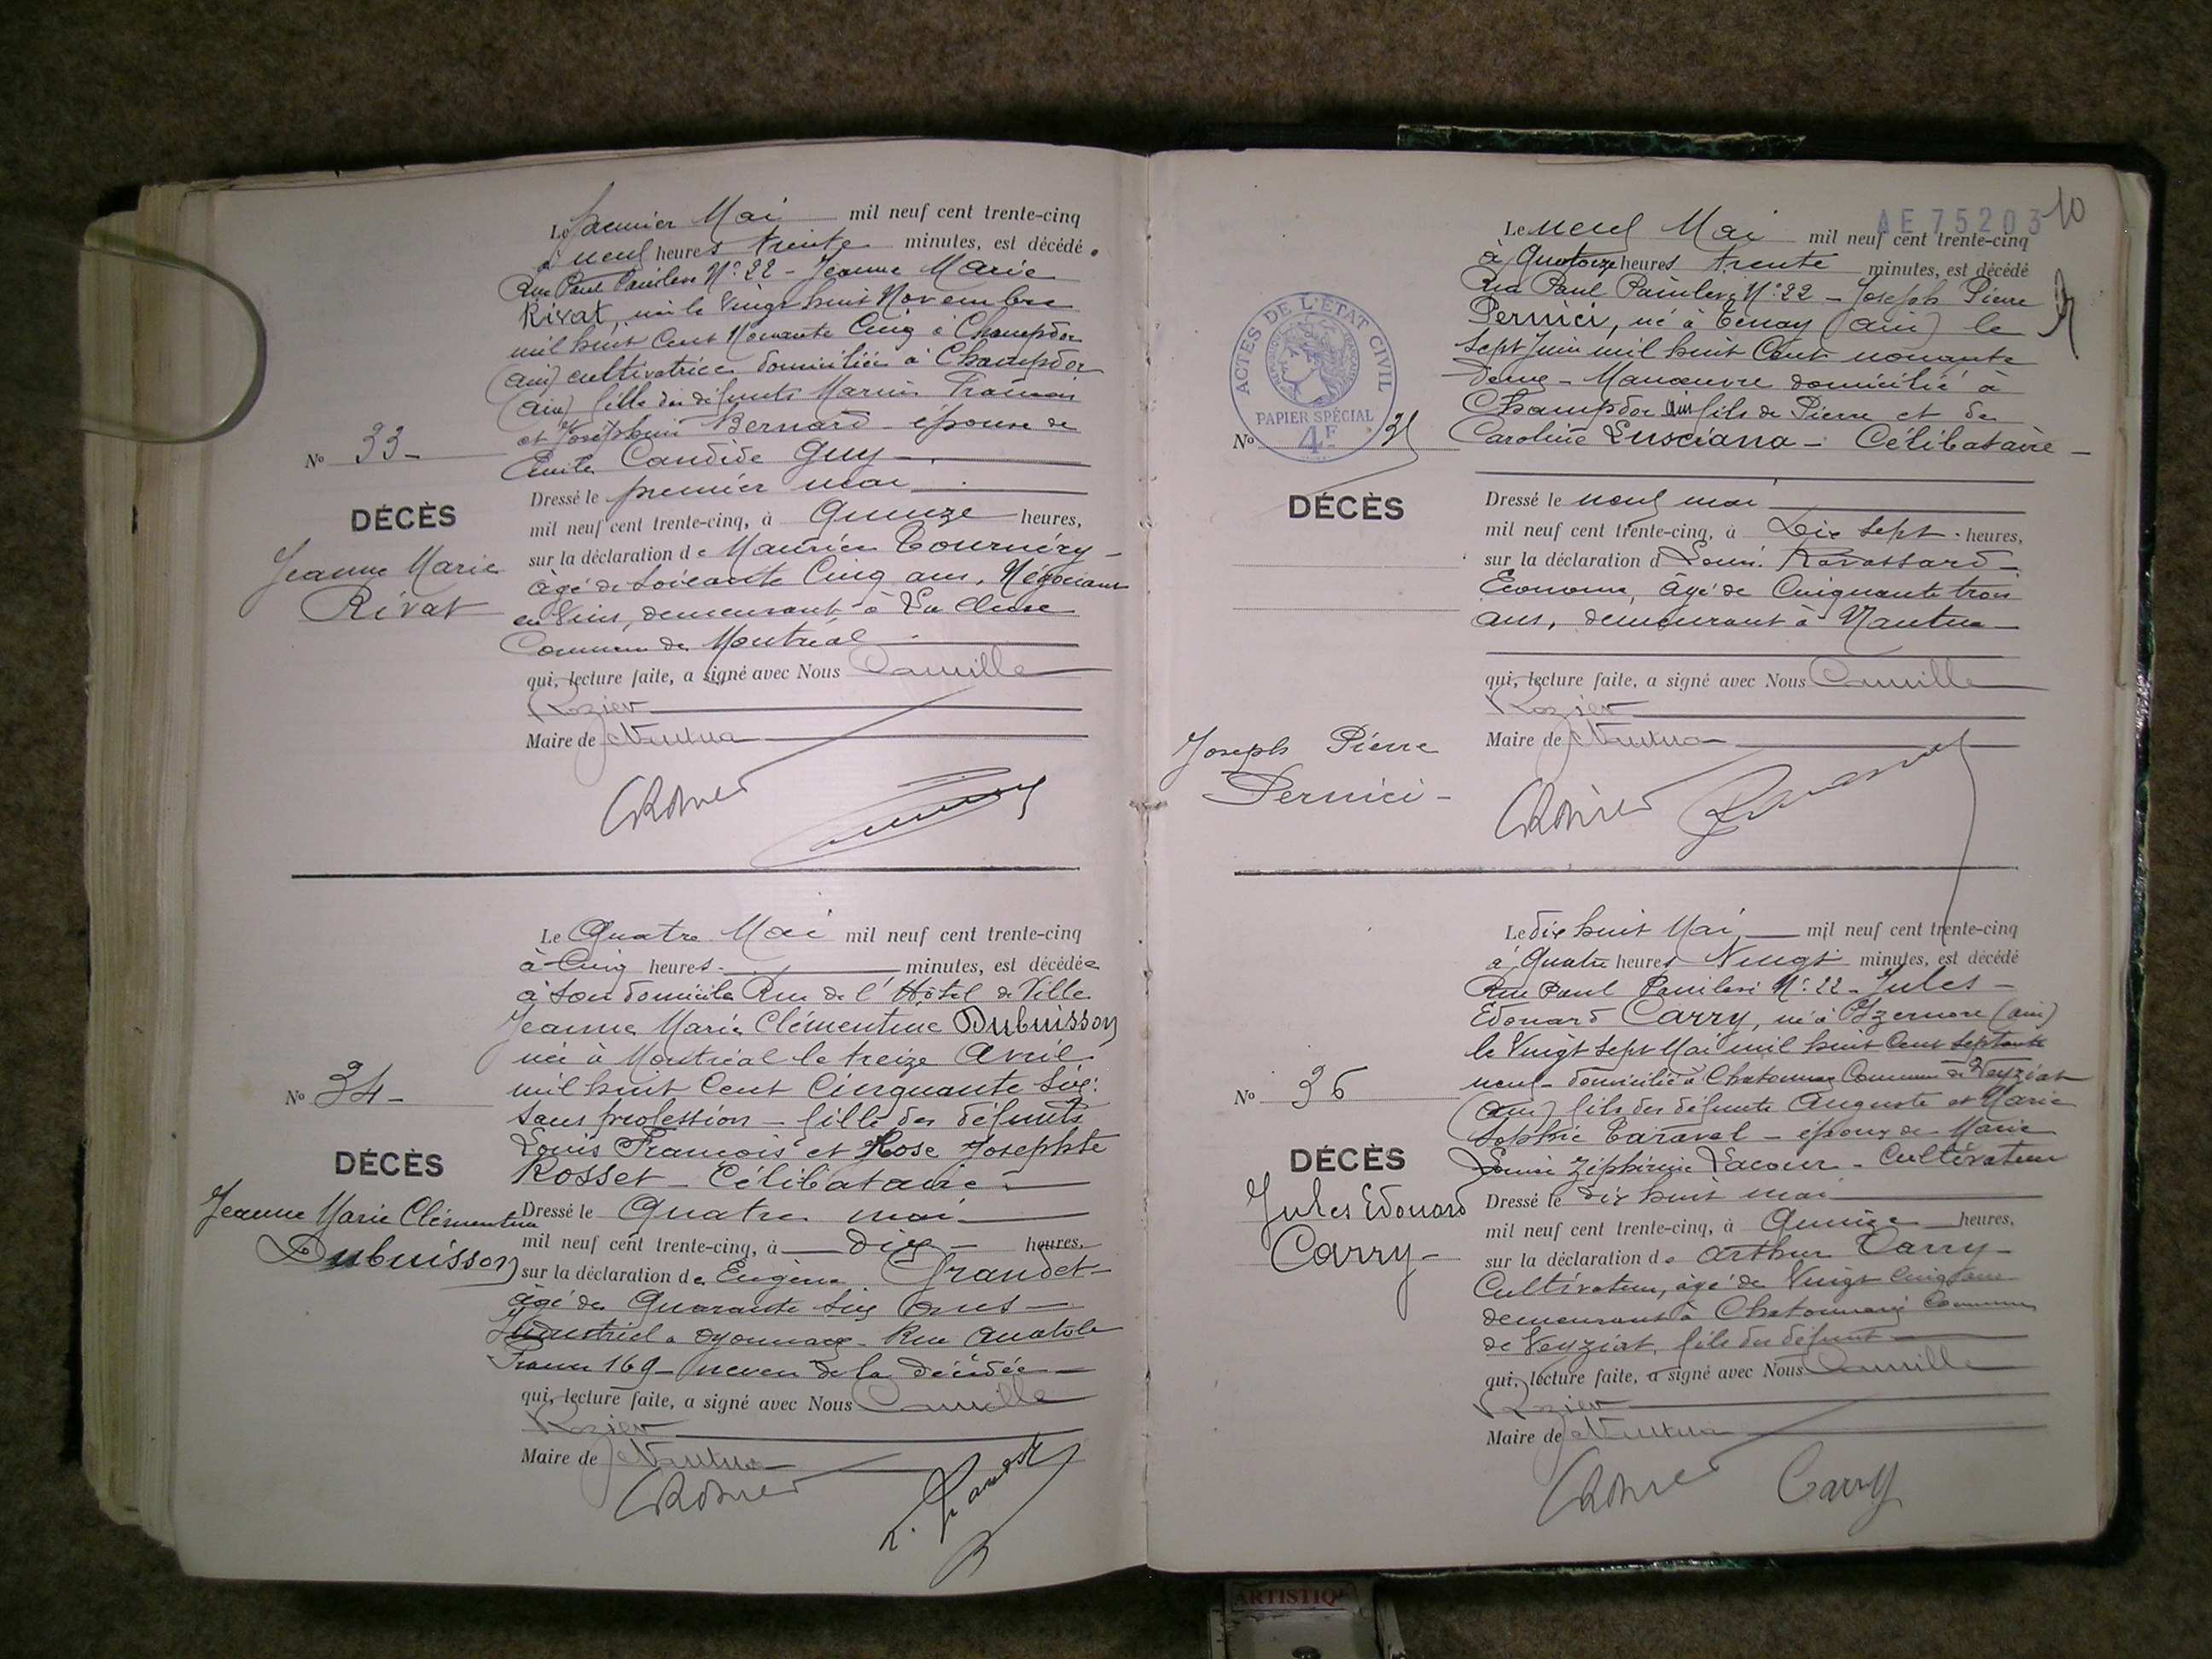 Le premier Mai mil neuf cent trente-cinq
à neuf heures trente minutes, est décédé
Rue Paul Painlevé N° 22 - Jeanne Marie
Rivat, née le Vingt huit Novembre
mil huit Cent Nonante Cinq à Champdor
(ain) cultivatrice domiciliée à Champdor
(ain) fille des défunts Marius François
et Joséphine Bernard - épouse de
Emile Candide Guy
N° 33
Dressé le premier mai
DÉCÈS
mil neuf cent trente-cinq, à Quinze heures,
Jeanne Marie
Rivat
sur la déclaration de Maurice Tournéry
âgé de Soixante Cinq ans, Négociant
en Vins, demeurant à La Cluse
Commune de Montréal
qui, lecture faite, a signé avec Nous Camille
Rozier
Maire de Nantua
Le Quatre Mai mil neuf cent trente-cinq
à Cinq heures minutes, est décédée
à son domicile Rue de l'Hôtel de Ville
Jeanne Marie Clémentine Dubuisson
née à Montréal le treize Avril
mil huit Cent Cinquante Six
N° 34
sans profession - fille des défunts
Louis François et Rose Josephte
DÉCÈS
Rosset - Célibataire
Jeanne Marie Clémentine
Dubuisson
Dressé le Quatre mai
mil neuf cent trente-cinq, à Dix heures,
sur la déclaration de Eugène Grandet
âgé de Quarante Six ans
Industriel à Oyonnax - Rue Anatole
France 169 - neveu de la décédée
qui, lecture faite, a signé avec Nous Camille
Rozier
Maire de Nantua
AE 75203
10
Le neuf Mai mil neuf cent trente-cinq
à Quatorze heures trente minutes, est décédé
Rue Paul Painlevé N° 22 - Joseph Pierre
Pernici, né à Tenay (ain) le
sept Juin mil huit Cent nonante
deux - Manœuvre domicilié à
Champdor ain fils de Pierre et de
Caroline Lusciana - Célibataire
ACTES DE L'ÉTAT CIVIL
PAPIER SPÉCIAL
4F
N° 35
DÉCÈS
Dressé le neuf mai
mil neuf cent trente-cinq, à Dix sept heures,
sur la déclaration d Louis Ravassard
Econome, âgé de Cinquante trois
ans, demeurant à Nantua
qui, lecture faite, a signé avec Nous Camille
Rozier
Maire de Nantua
Joseph Pierre
Pernici
Le dix huit Mai mil neuf cent trente-cinq
à Quatre heures Vingt minutes, est décédé
Rue Paul Painlevé N° 22 - Jules
Edouard Carry, né à Izernore (ain)
le Vingt sept Mai mil huit Cent septante
neuf - domicilié à Chatonnax Commune de Veyziat
N° 36
(ain) fils des défunts Auguste et Marie
Sophie Taravel - époux de Marie
DÉCÈS
Louise Zéphirine Lacour - Cultivateur
Jules Edouard
Carry
Dressé le dix huit mai
mil neuf cent trente-cinq, à Quinze heures,
sur la déclaration de Arthur Carry
Cultivateur, âgé de Vingt Cinq ans
demeurant à Chatonnax Commune
de Veyziat, fils du défunt
qui, lecture faite, a signé avec Nous Camille
Rozier
Maire de Nantua
Carry
ARTISTIQ